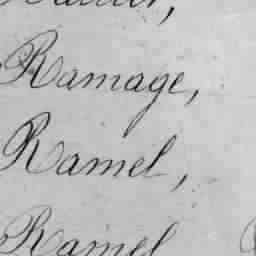 Ramage,
Ramel,
Ramel